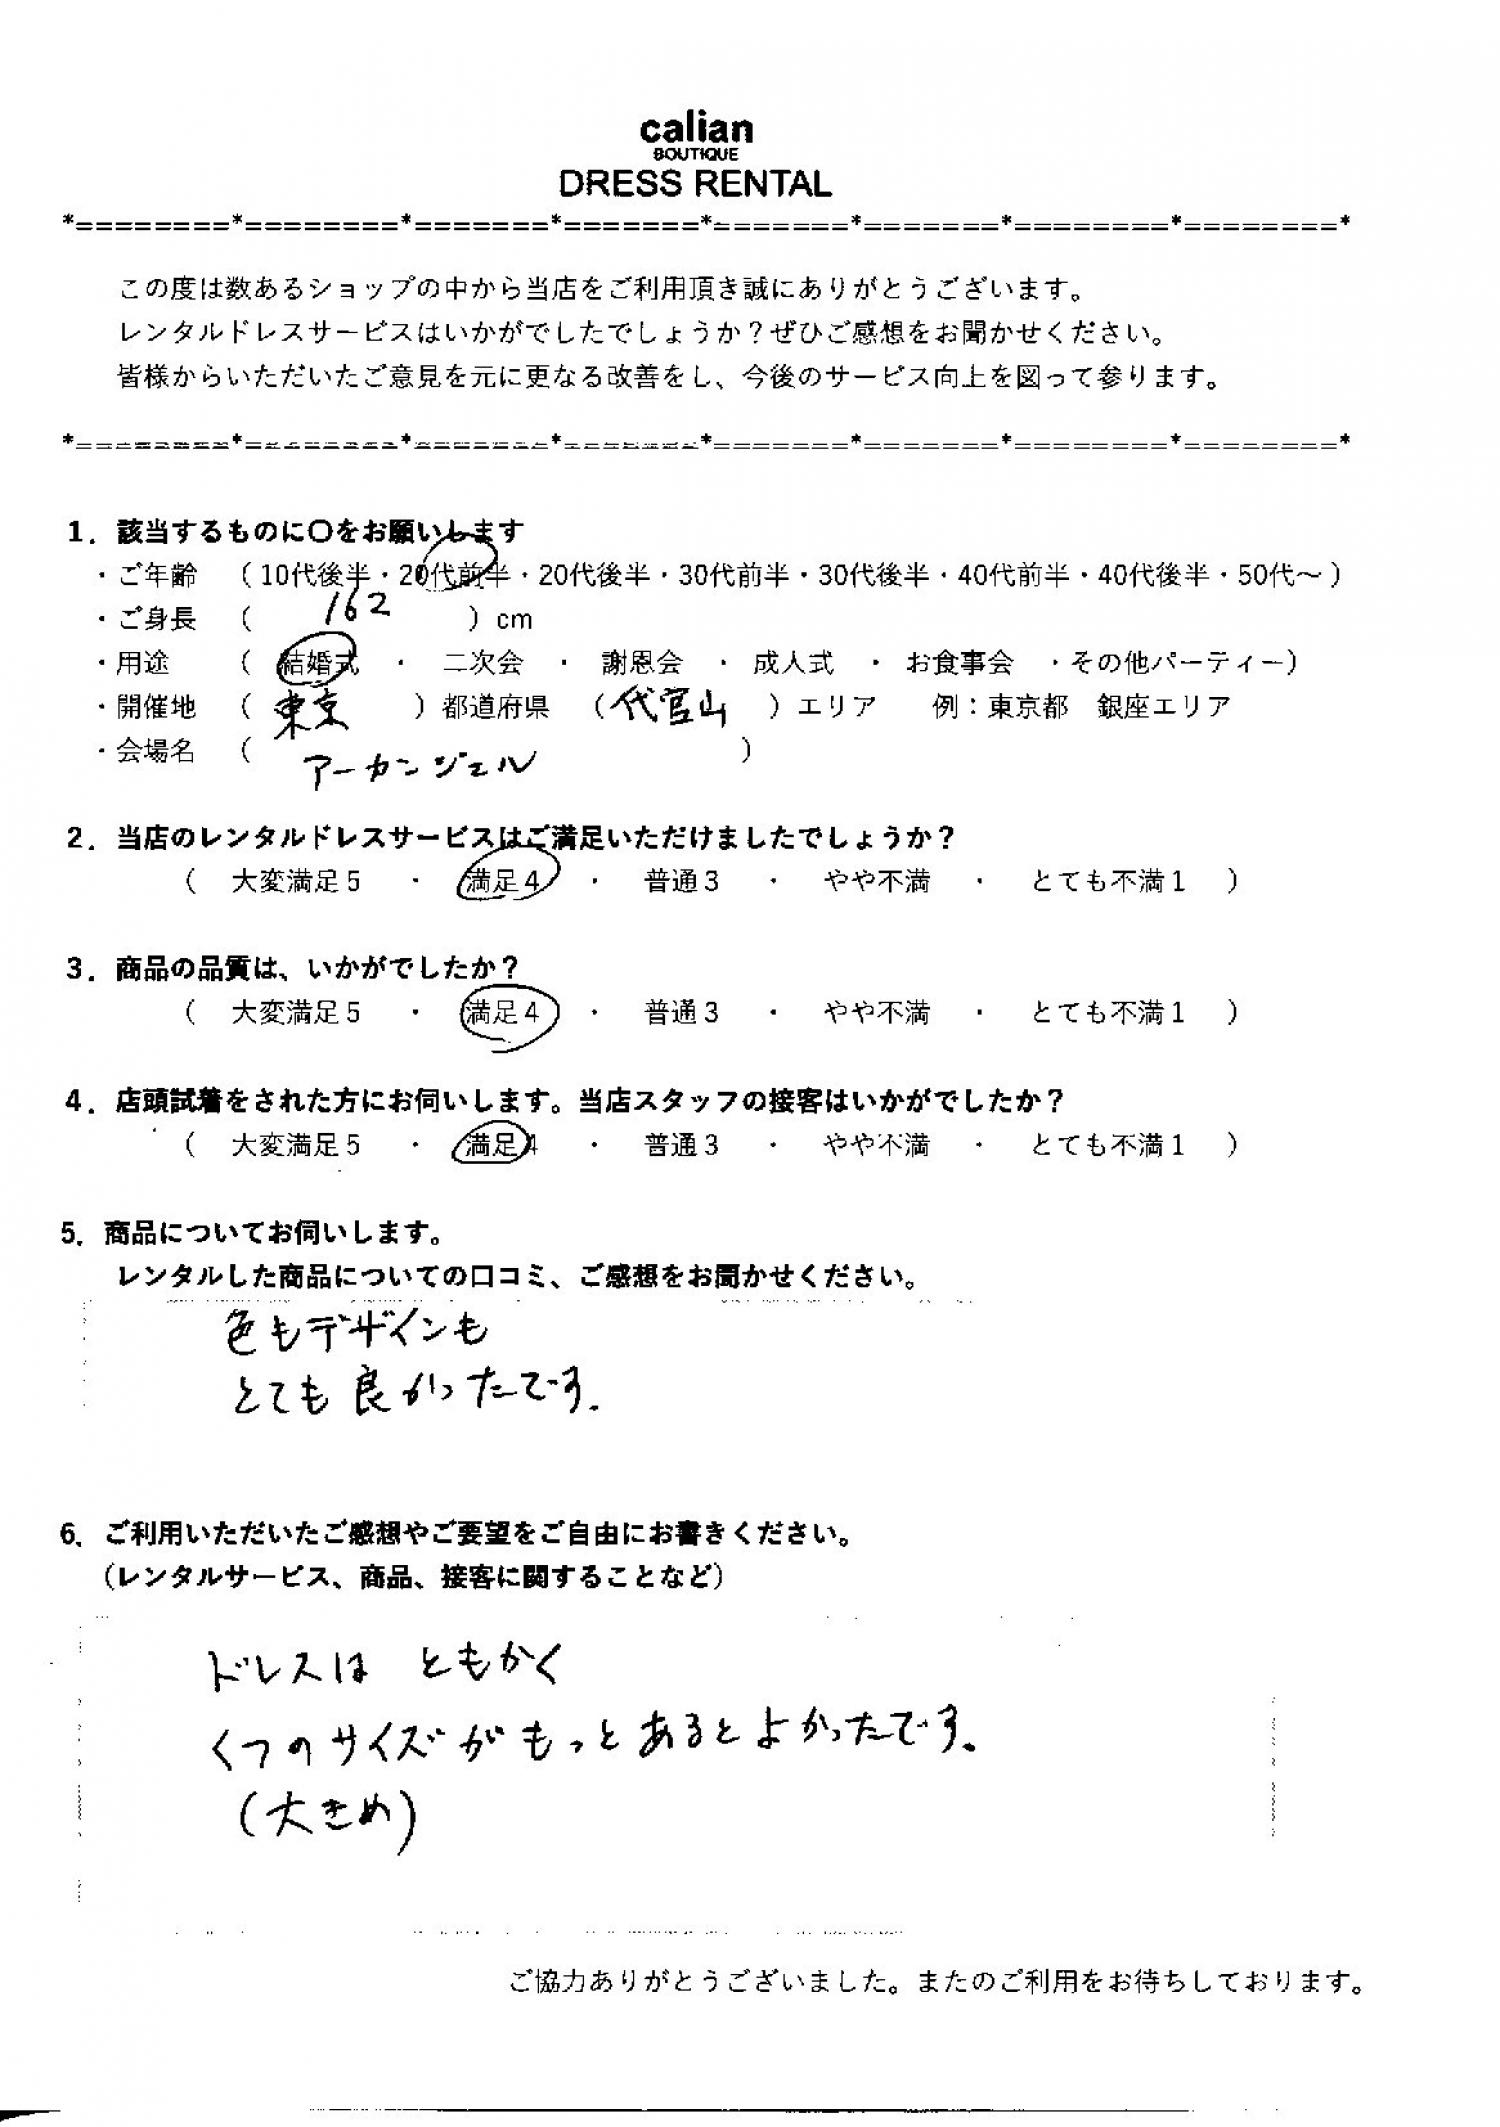 calian
BOUTIQUE
DRESS RENTAL
*========*========*=======*=======*=======*=======*========*========*
この度は数あるショップの中から当店をご利用頂き誠にありがとうございます。
レンタルドレスサービスはいかがでしたでしょうか？ぜひご感想をお聞かせください。
皆様からいただいたご意見を元に更なる改善をし、今後のサービス向上を図って参ります。
*========*========*=======*=======*=======*=======*========*========*
1．該当するものに〇をお願いします
・ご年齢 （ 10代後半・20代前半・20代後半・30代前半・30代後半・40代前半・40代後半・50代～ ）
・ご身長 （ 162 ）cm
・用途 （ 結婚式 ・ 二次会 ・ 謝恩会 ・ 成人式 ・ お食事会 ・その他パーティー）
・開催地 （ 東京 ）都道府県 （代官山 ）エリア 例：東京都 銀座エリア
・会場名 （ アーカンジェル ）
2．当店のレンタルドレスサービスはご満足いただけましたでしょうか？
（ 大変満足５ ・ 満足４ ・ 普通３ ・ やや不満 ・ とても不満１ ）
3．商品の品質は、いかがでしたか？
（ 大変満足５ ・ 満足４ ・ 普通３ ・ やや不満 ・ とても不満１ ）
4．店頭試着をされた方にお伺いします。当店スタッフの接客はいかがでしたか？
（ 大変満足５ ・ 満足４ ・ 普通３ ・ やや不満 ・ とても不満１ ）
5．商品についてお伺いします。
レンタルした商品についての口コミ、ご感想をお聞かせください。
色もデザインも
とても良かったです.
6．ご利用いただいたご感想やご要望をご自由にお書きください。
（レンタルサービス、商品、接客に関することなど）
ドレスは ともかく
くつのサイズがもっとあるとよかったです.
(大きめ)
ご協力ありがとうございました。またのご利用をお待ちしております。